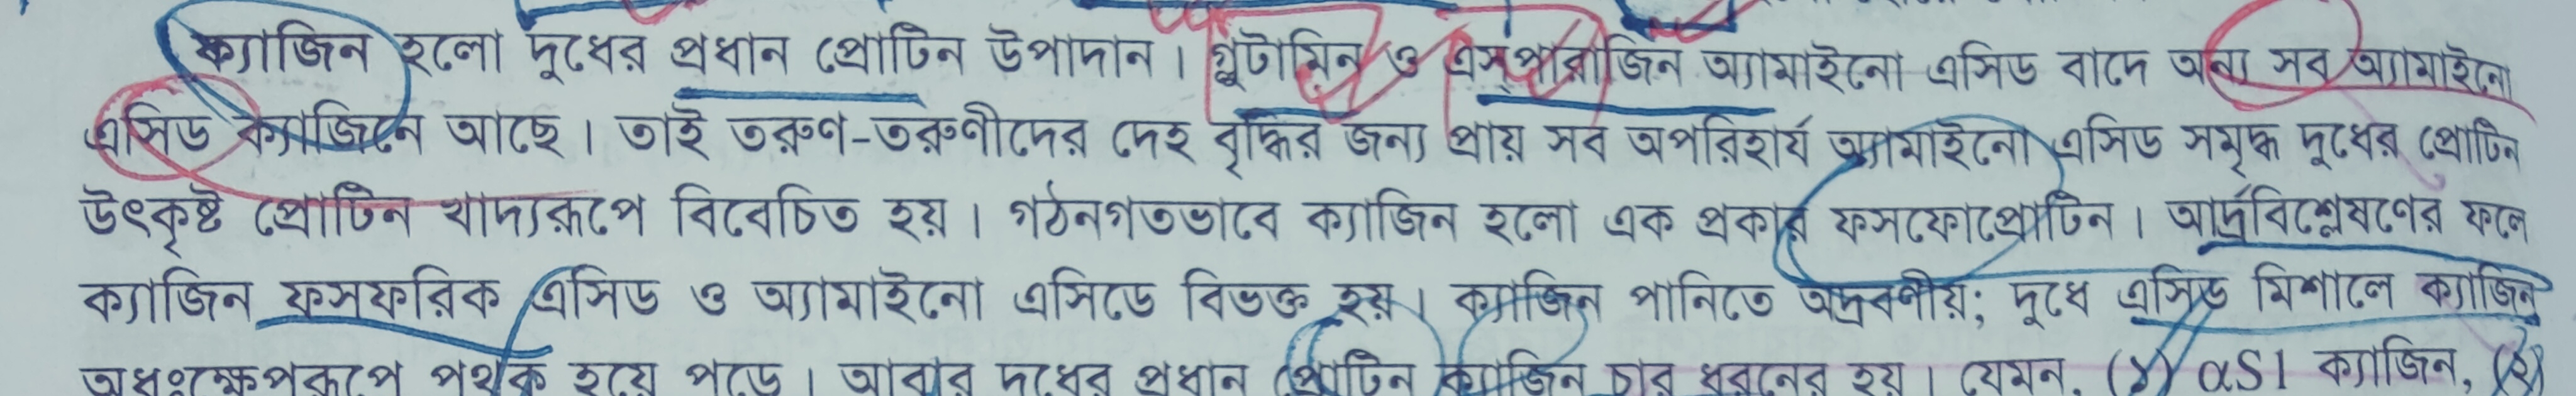 ক্যাজিন হলো দুধের প্রধান প্রোটিন উপাদান। গ্লুটামিন ও এস্পারাজিন অ্যামাইনো এসিড বাদে অন্য সব অ্যামাইনো
এসিড ক্যাজিনে আছে। তাই তরুণ-তরুণীদের দেহ বৃদ্ধির জন্য প্রায় সব অপরিহার্য অ্যামাইনো এসিড সমৃদ্ধ দুধের প্রোটিন
উৎকৃষ্ট প্রোটিন খাদ্যরূপে বিবেচিত হয়। গঠনগতভাবে ক্যাজিন হলো এক প্রকার ফসফোপ্রোটিন। আর্দ্রবিশ্লেষণের ফলে
ক্যাজিন ফসফরিক এসিড ও অ্যামাইনো এসিডে বিভক্ত হয়। ক্যাজিন পানিতে অদ্রবণীয়; দুধে এসিড মিশালে ক্যাজিন
অধঃক্ষেপরূপে পৃথক হয়ে পড়ে। আবার দুধের প্রধান প্রোটিন ক্যাজিন চার ধরনের হয়। যেমন, (১) αS1 ক্যাজিন, (২)